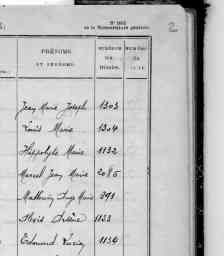 N° 102
de la Nomenclature générale.
2
PRÉNOMS
NUMÉROS
NUMÉROS
ET SURNOMS.
du
de
Jean Marie Joseph 1303
Louis Marie 1304
Hippolyte Marie 1132
Marcel Jean Marie 2085
Mathurin Ange Marie 391
Alexis 1133
Edmond Lucien 1134